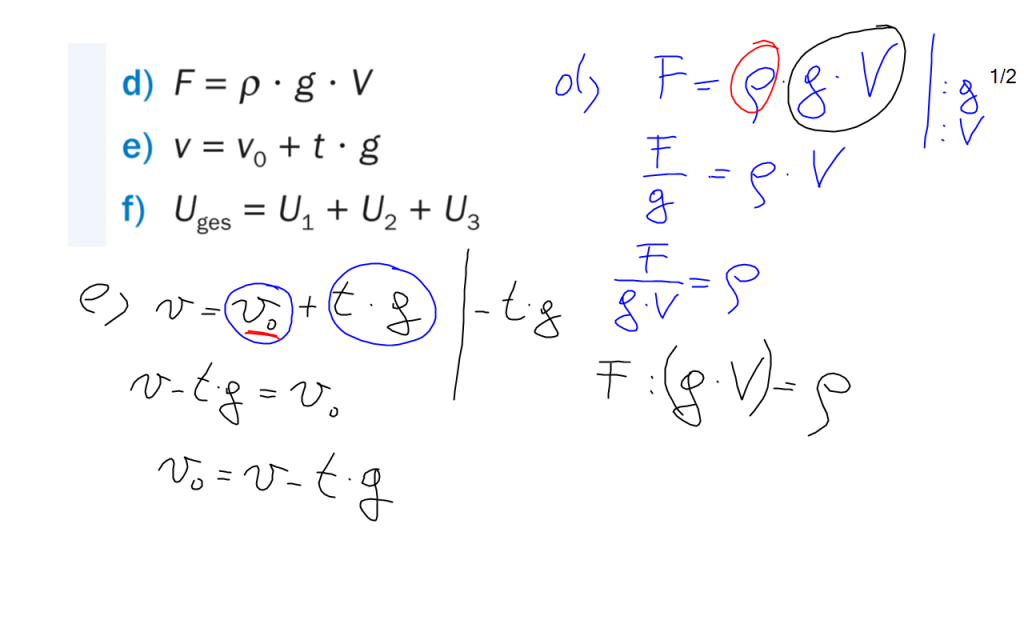 d) F = ρ · g · V
e) v = v₀ + t · g
f) U_ges = U₁ + U₂ + U₃
d) F = ρ · g · V | : g
: V
1/2
F/g = ρ · V
F/(g · V) = ρ
F : (g · V) = ρ
e) v = v₀ + t · g | - t · g
v - t · g = v₀
v₀ = v - t · g